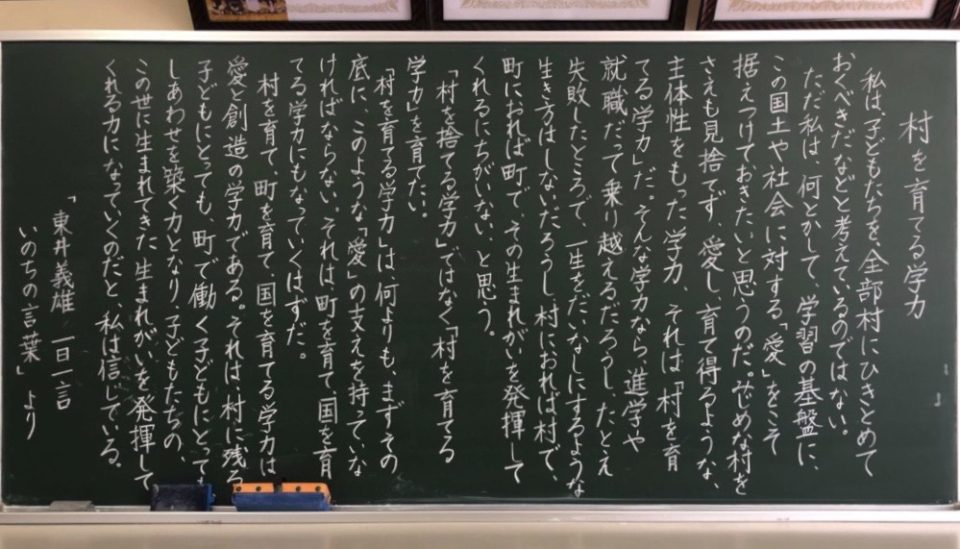 村を育てる学力
私は、子どもたちを、全部村にひきとめて
おくべきだなどと考えているのではない。
ただ私は、何とかして、学習の基盤に、
この国土や社会に対する「愛」をこそ
据えつけておきたいと思うのだ。みじめな村を
さえも見捨てず、愛し、育て得るような、
主体性をもった学力、それは「村を育
てる学力」だ。そんな学力なら、進学や
就職だって乗り越えるだろうし、たとえ
失敗したところで、一生をだいなしにするような
生き方はしないだろうし、村におれば村で、
町におれば町で、その生まれがいを発揮して
くれるにちがいない、と思う。
「村を捨てる学力」ではなく「村を育てる
学力」を育てたい。
「村を育てる学力」は、何よりも、まずその
底に、このような「愛」の支えを持っていな
ければならない。それは町を育て、国を育
てる学力にもなっていくはずだ。
村を育て、町を育て、国を育てる学力は
愛と創造の学力である。それは、村に残る
子どもにとっても、町で働く子どもにとっても
しあわせを築く力となり、子どもたちの、
この世に生まれてきた、生まれがいを発揮して
くれる力になっていくのだと、私は信じている。
「東井義雄 一日一言
いのちの言葉」より